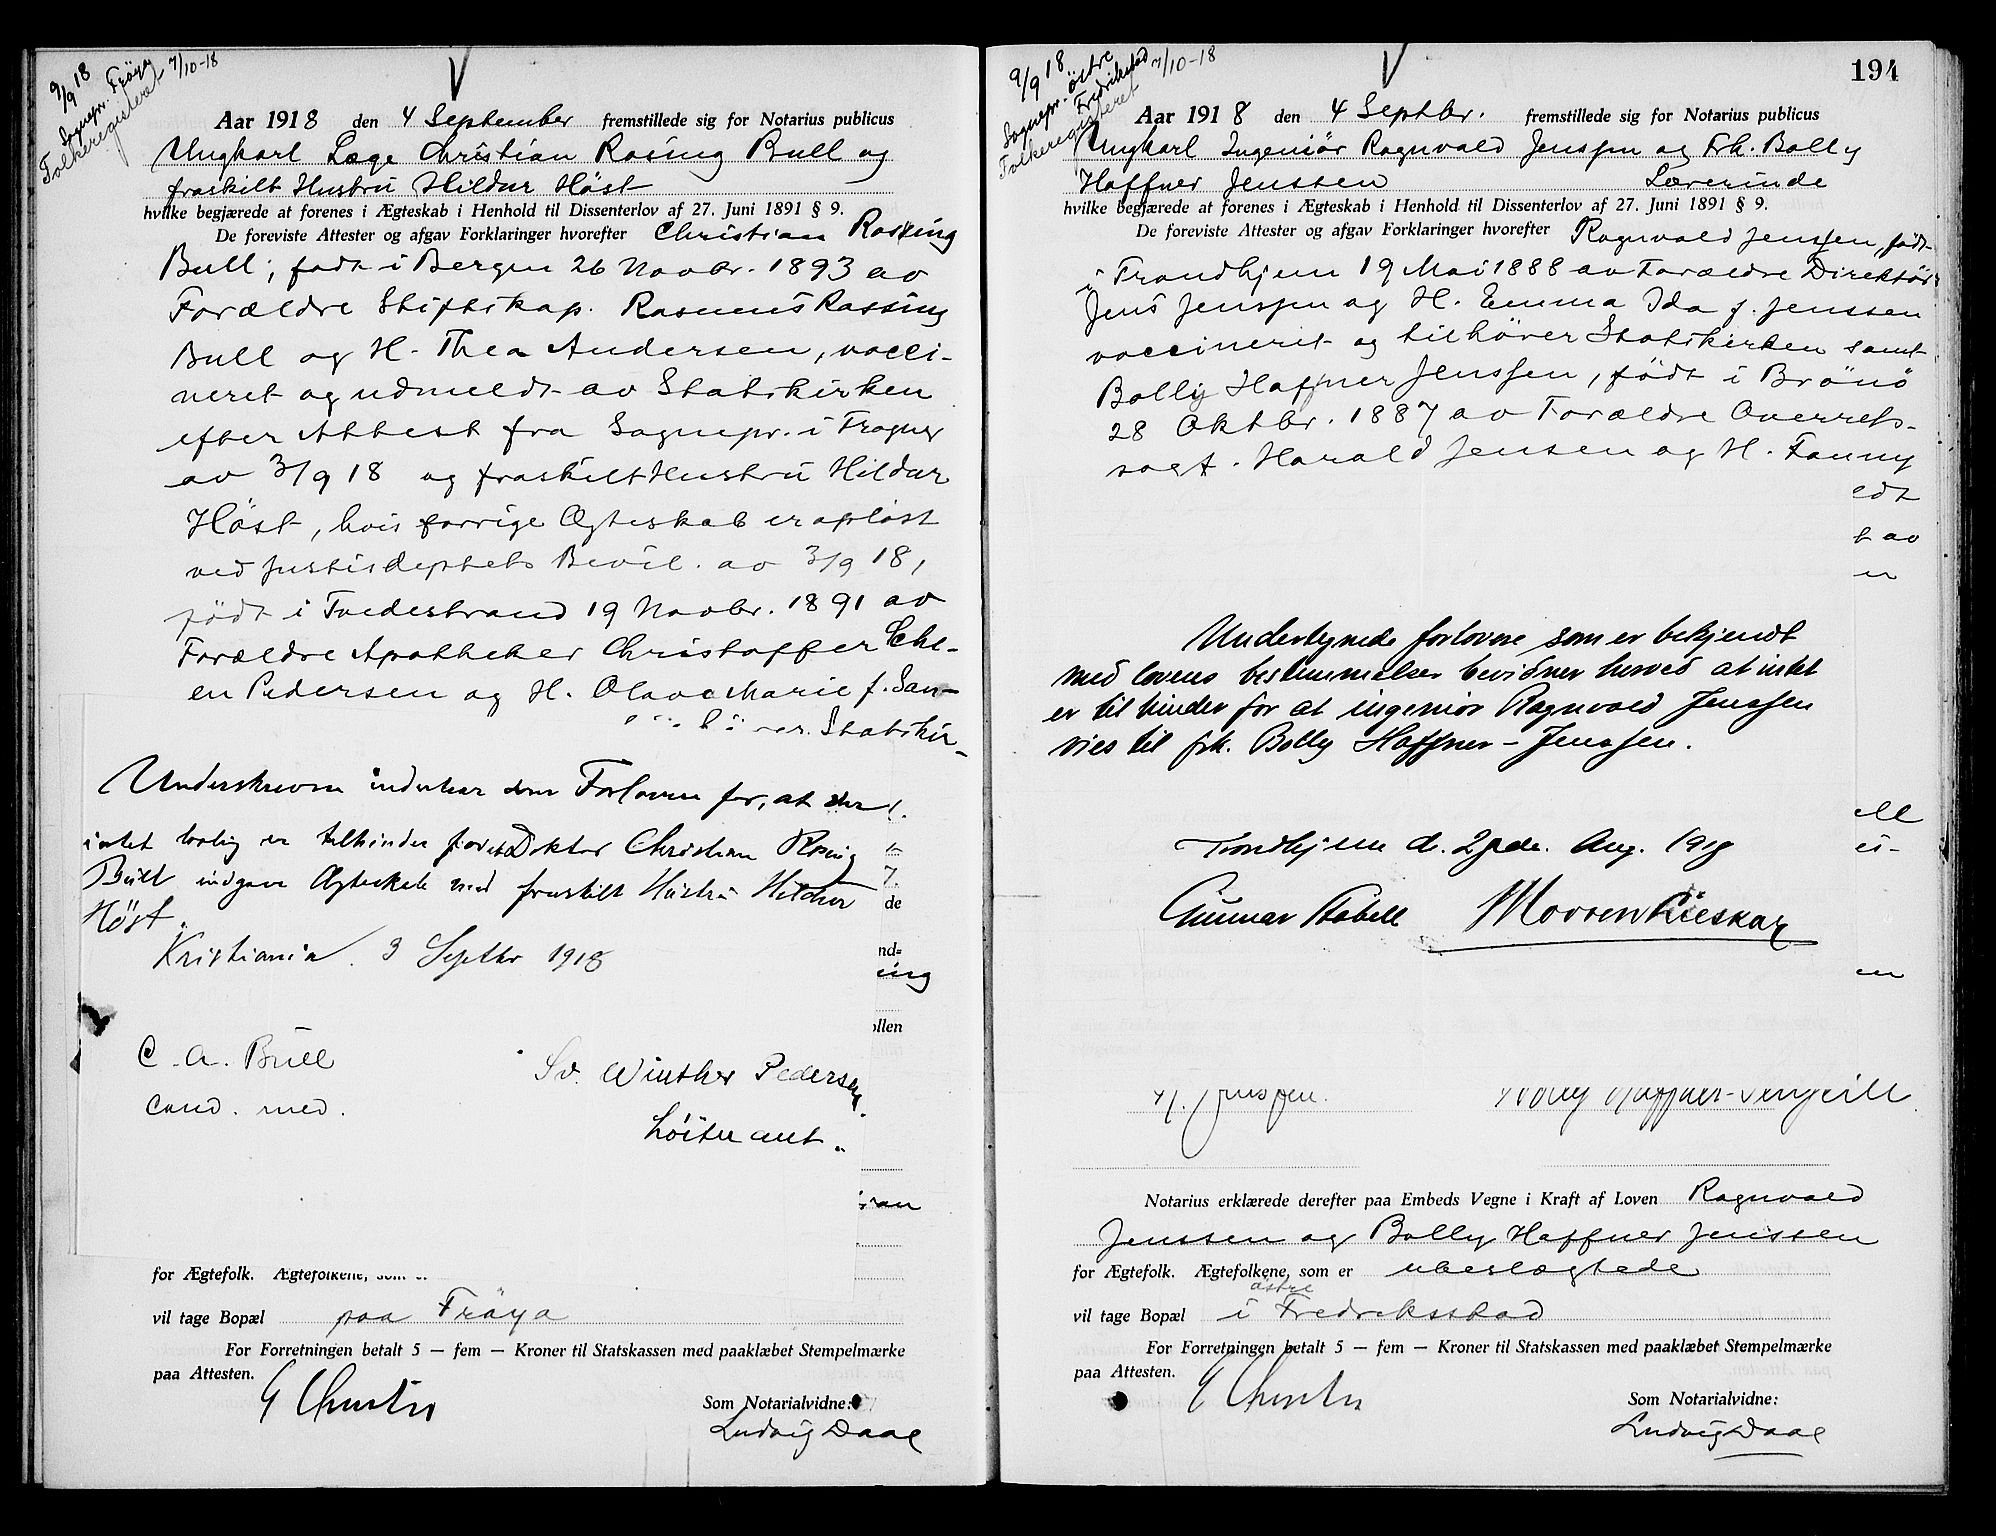 9/9 18
Sognepr. Fröya
Folkeregisteret 7/10-18
Aar 1918 den 4 September fremstillede sig for Notarius publicus
Ungkarl Læge Christian Rasing Bull og
fraskilt Hustru Hildur Höst
hvilke begjærede at forenes i Ægteskab i Henhold til Dissenterlov af 27. Juni 1891 § 9.
De foreviste Attester og afgav Forklaringer hvorefter Christian Rossing
Bull, født i Bergen 26 Novbr. 1893 av
Forældre Stiftskap. Rasmus Rossing
Bull og H. Thea Andersen, vacci-
neret og udmeldt av Statskirken
efter Attest fra Sognepr. i Frogner
av 3/9 18 og fraskilt Hustru Hildur
Höst, hvis forrige Ægteskab er opløst
ved Justisdeptets Bevil. av 3/9 18,
född i Tvedestrand 19 Novbr. 1891 av
Forældre Apotheker Christoffer
en Pedersen og H. Olava Marie f. San-
Statskir-
Underskrevne indestaar som Forlovere for, at der
intet lovlig er tilhinder for at Doktor Christian Rosing
Bull indgaar Ægteskab med fraskilt Hustru Hildur
Höst.
de
Kristiania. 3 Septbr 1918
nd=
ing
ollen
C. A. Bull
Sv. Winther Pedersen
cand. med.
Löitnant.
for Ægtefolk. Ægtefolkene, som e
vil tage Bopæl paa Fröya
For Forretningen betalt 5 — fem — Kroner til Statskassen med paaklæbet Stempelmærke
paa Attesten.
Som Notarialvidne:
Ludvig Daae
194
9/9 18
Sognepr. östre
Fredrikstad
Folkeregisteret 7/10-18
Aar 1918 den 4 Septbr. fremstillede sig for Notarius publicus
Ungkarl Ingeniör Ragnvald Jenssen og Frk. Bolly
Haffner Jenssen Lærerinde
hvilke begjærede at forenes i Ægteskab i Henhold til Dissenterlov af 27. Juni 1891 § 9.
De foreviste Attester og afgav Forklaringer hvorefter Ragnvald Jenssen, født
i Trondhjem 19 Mai 1888 av Forældre Direktör
Jens Jenssen og H. Emma Ida f. Jenssen
vaccineret og tilhörer Statskirken samt
Bolly Haffner Jenssen, född i Brönö
28 Oktbr. 1887 av Forældre Overrets-
sagf. Harald Jensen og H. Fanny
edt
t av
en
Undertegnede forlovere som er bekjendt
med lovens bestemmelser bevidner herved at intet
er til hinder for at ingeniör Ragnvald Jenssen
vies til frk. Bolly Haffner-Jenssen.
Trondhjem d. 29de. Aug. 1918
Gunnar Stabell
en
Notarius erklærede derefter paa Embeds Vegne i Kraft af Loven Ragnvald
Jenssen og Bolly Haffner Jenssen
for Ægtefolk. Ægtefolkene, som er ubeslægtede
östre
vil tage Bopæl i Fredriksstad
For Forretningen betalt 5 — fem — Kroner til Statskassen med paaklæbet Stempelmærke
paa Attesten.
Som Notarialvidne:
Ludvig Daae